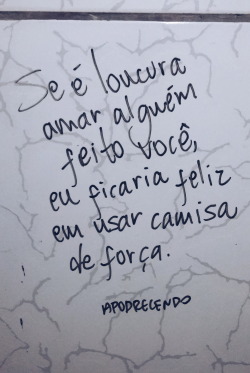 Se é loucura
amar alguém
feito você,
eu ficaria feliz
em usar camisa
de força.
APODRECENDO